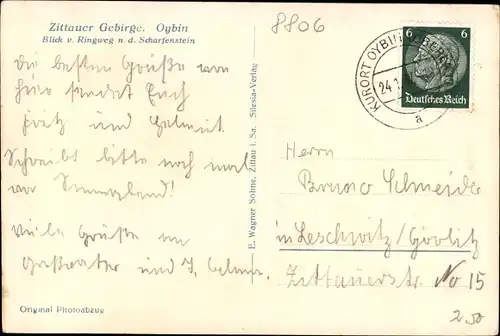 Zittauer Gebirge. Oybin
Blick v. Ringweg n. d. Scharfenstein
8806
6 6
Deutsches Reich
KURORT OYBIN
24.1
a
Die besten Grüße von
hier sendet Euch
Fritz und Helmut.
Schreibt bitte noch mal
vor
Viele Grüße an
Großvater und
E. Wagner Söhne, Zittau i. Sa. Silesia-Verlag
Herrn
Bruno Schneider
in Leschwitz/Görlitz
Zittauerstr. No 15
2.50
Original Photoabzug